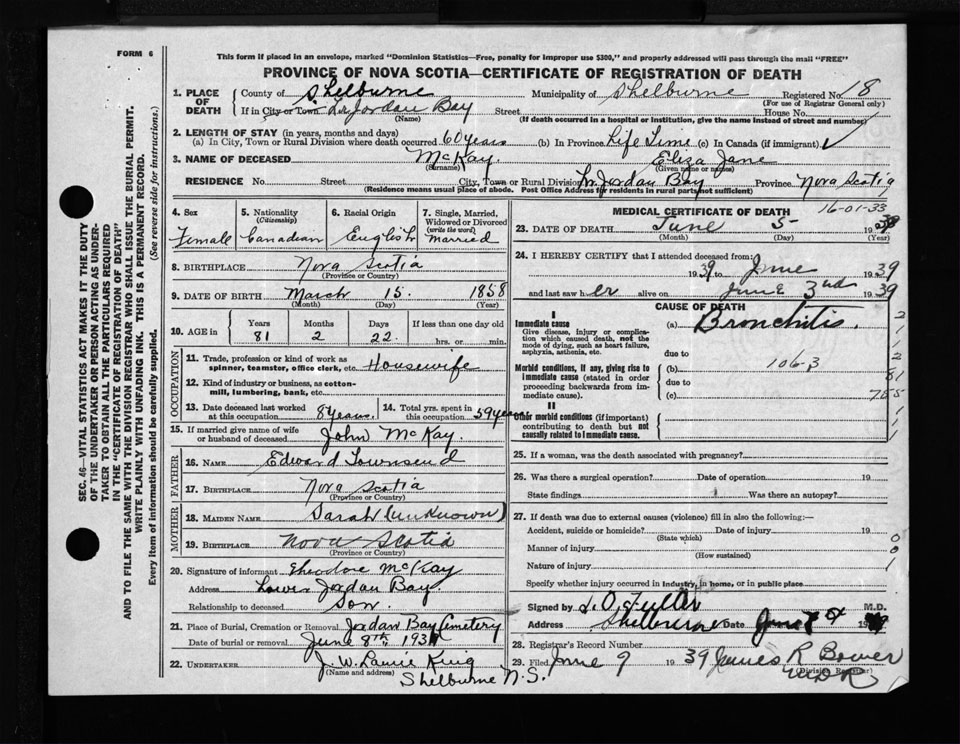 FORM 6
This form if placed in an envelope, marked "Dominion Statistics—Free, penalty for improper use $300," and properly addressed will pass through the mail "FREE"
PROVINCE OF NOVA SCOTIA—CERTIFICATE OF REGISTRATION OF DEATH
1. PLACE OF DEATH County of Shelburne Municipality of Shelburne Registered No. 18
(For use of Registrar General only)
If in City or Town Lr Jordan Bay Street House No.
(Name) (If death occurred in a hospital or institution, give the name instead of street and number)
2. LENGTH OF STAY (in years, months and days)
(a) In City, Town or Rural Division where death occurred 60 years (b) In Province Life Time (c) In Canada (if immigrant)
3. NAME OF DECEASED McKay. Eliza Jane
(Surname) (Given name or names)
RESIDENCE No. Street City, Town or Rural Division Lr. Jordan Bay Province Nova Scotia
(Residence means usual place of abode. Post Office Address for residents in rural parts not sufficient)
4. Sex Female
5. Nationality (Citizenship) Canadian
6. Racial Origin English
7. Single, Married, Widowed or Divorced (write the word) Married
8. BIRTHPLACE Nova Scotia
(Province or Country)
9. DATE OF BIRTH March 15. 1858
(Month) (Day) (Year)
10. AGE in Years Months Days If less than one day old
81 2 22. hrs. or min.
OCCUPATION
11. Trade, profession or kind of work as spinner, teamster, office clerk, etc. Housewife
12. Kind of industry or business, as cotton-mill, lumbering, bank, etc.
13. Date deceased last worked at this occupation 8 years.
14. Total yrs. spent in this occupation 59 years
15. If married give name of wife or husband of deceased John McKay.
FATHER
16. NAME Edward Townsend
17. BIRTHPLACE Nova Scotia
(Province or Country)
MOTHER
18. MAIDEN NAME Sarah (unknown)
19. BIRTHPLACE Nova Scotia
(Province or Country)
20. Signature of informant Theodore McKay
Address Lower Jordan Bay.
Relationship to deceased Son.
21. Place of Burial, Cremation or Removal Jordan Bay Cemetery
Date of burial or removal June 8th, 193
22. UNDERTAKER J. W. Laurie King
(Name and address) Shelburne N.S.
MEDICAL CERTIFICATE OF DEATH 16-01-33
23. DATE OF DEATH June 5 1939
(Month) (Day) (Year)
24. I HEREBY CERTIFY that I attended deceased from:
1939 June 1939
and last saw her alive on June 3rd 1939
CAUSE OF DEATH
I
Immediate cause (a) Bronchitis.
Give disease, injury or complication which caused death, not the mode of dying, such as heart failure, asphyxia, asthenia, etc.
due to
Morbid conditions, if any, giving rise to immediate cause (stated in order proceeding backwards from immediate cause).
(b) 106-3
due to
(c)
II
Other morbid conditions (if important) contributing to death but not causally related to immediate cause.
25. If a woman, was the death associated with pregnancy?
26. Was there a surgical operation? Date of operation 19
State findings Was there an autopsy?
27. If death was due to external causes (violence) fill in also the following:—
Accident, suicide or homicide? Date of injury 19
(State which)
Manner of injury
(How sustained)
Nature of injury
Specify whether injury occurred in industry, in home, or in public place
Signed by L. O. Fuller M.D.
Address Shelburne Date June 19
28. Registrar's Record Number
29. Filed June 9 1939 James R Bower
(Division Registrar)
SEC. 46—VITAL STATISTICS ACT MAKES IT THE DUTY OF THE UNDERTAKER OR PERSON ACTING AS UNDERTAKER TO OBTAIN ALL THE PARTICULARS REQUIRED IN THE "CERTIFICATE OF REGISTRATION OF DEATH"
AND TO FILE THE SAME WITH THE DIVISION REGISTRAR WHO SHALL ISSUE THE BURIAL PERMIT.
WRITE PLAINLY WITH UNFADING INK. THIS IS A PERMANENT RECORD.
Every item of information should be carefully supplied. (See reverse side for instructions.)